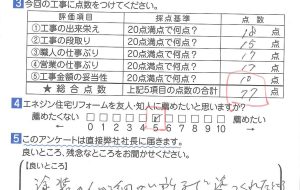 3 今回の工事に点数をつけてください。
評価項目 採点基準 点数
①工事の出来栄え 20点満点で何点? 18点
②工事の段取り 20点満点で何点? 15点
③職人の仕事ぶり 20点満点で何点? 17点
④営業の仕事ぶり 20点満点で何点? 17点
⑤工事金額の妥当性 20点満点で何点? 10点
★総合点数 上記5項目の点数の合計 77点
4 エネジン住宅リフォームを友人・知人に薦めたいと思いますか?
薦めたくない 薦めたい
0 1 2 3 4 5 6 7 8 9 10
5 このアンケートは直接弊社社長に届きます。
良いところ、残念なところをお聞かせください。